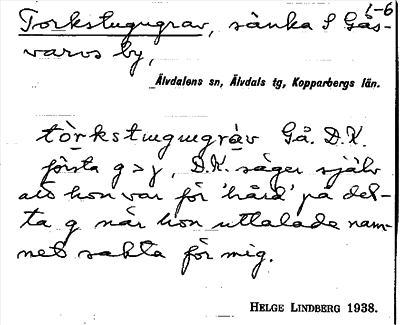 1-6
Torkstugugrav, sänka S Gås-
varvs by,
Älvdalens sn, Älvdals tg, Kopparbergs län.
tòrkstugugràv Gå. D.K.
första g > γ, D.K. säger själv
att hon var för 'hård' på det-
ta g när hon uttalade nam-
net sakta för mig.
HELGE LINDBERG 1938.